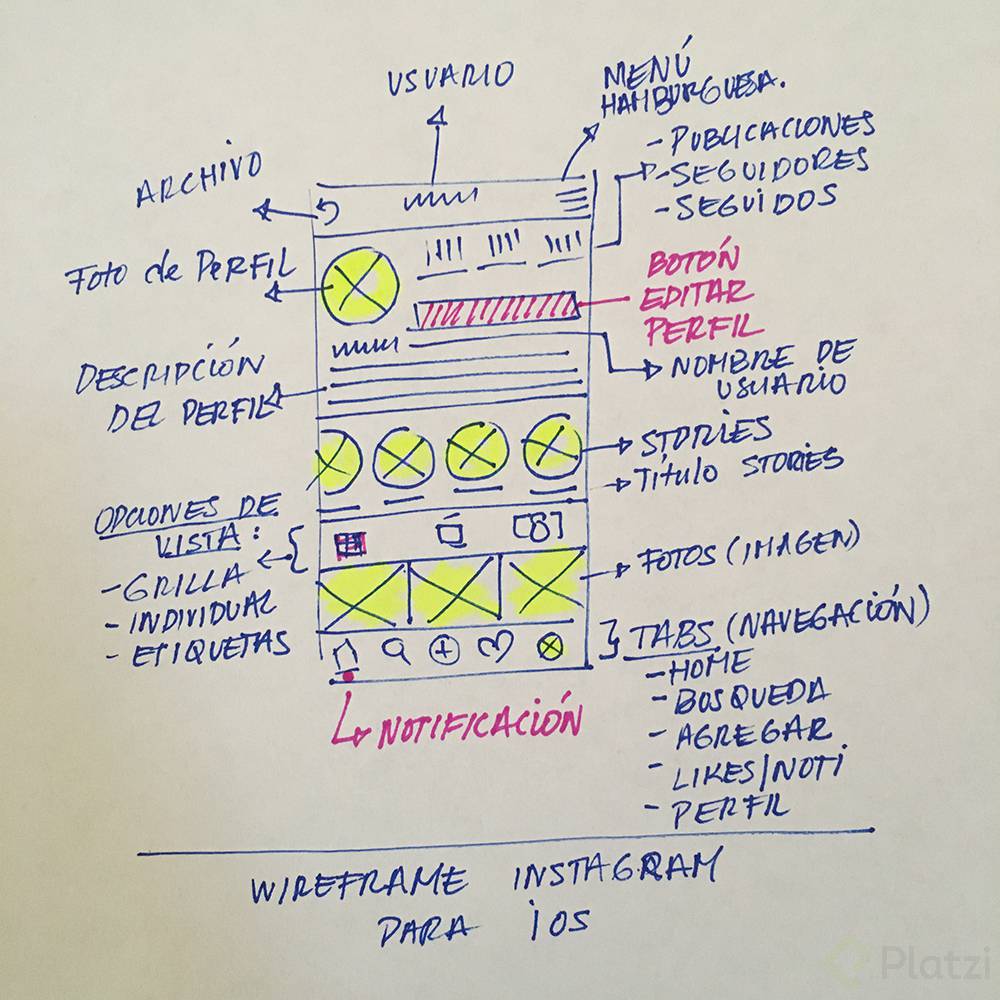 USUARIO
MENÚ
HAMBURGUESA.
- PUBLICACIONES
- SEGUIDORES
- SEGUIDOS
ARCHIVO
Foto de PERFIL
BOTÓN
EDITAR
PERFIL
NOMBRE DE
USUARIO
DESCRIPCIÓN
DEL PERFIL
STORIES
Título STORIES
OPCIONES DE
VISTA:
- GRILLA
- INDIVIDUAL
- ETIQUETAS
FOTOS (IMAGEN)
TABS (NAVEGACIÓN)
- HOME
- BOSQUEDA
- AGREGAR
- LIKES/NOTI
- PERFIL
NOTIFICACIÓN
WIREFRAME INSTAGRAM
PARA iOS
Platzi